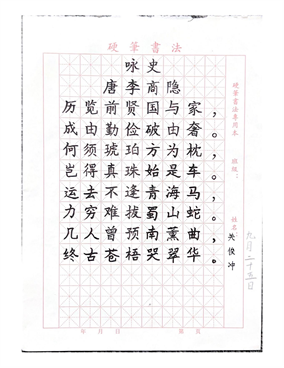 硬筆書法
咏史
唐 李商隐
历览前贤国与家，
成由勤俭破由奢。
何须琥珀方为枕，
岂得真珠始是车。
运去不逢青海马，
力穷难拔蜀山蛇。
几人曾预南薰曲，
终古苍梧哭翠华。
硬筆書法專用本
班級：
姓名
关俊冲
九月二十五日
年 月 日